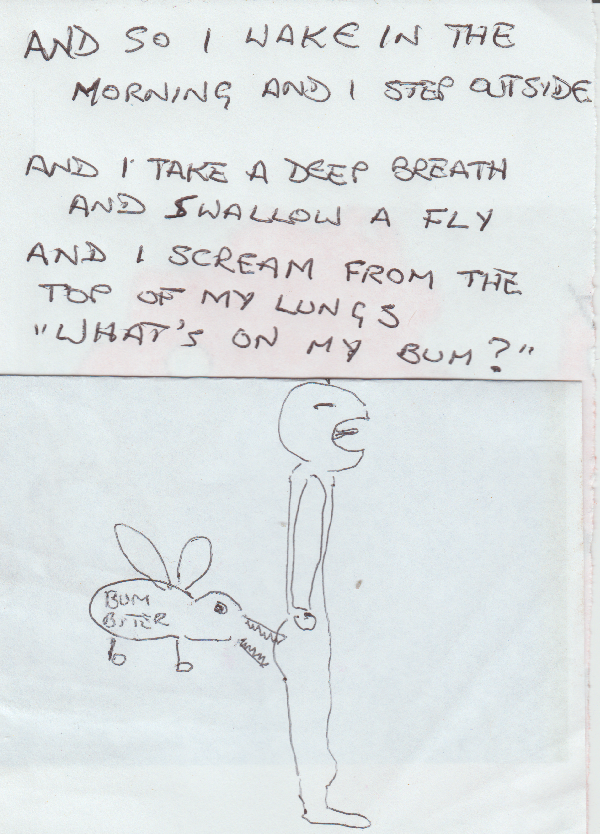 AND SO I WAKE IN THE
MORNING AND I STEP OUTSIDE
AND I TAKE A DEEP BREATH
AND SWALLOW A FLY
AND I SCREAM FROM THE
TOP OF MY LUNGS
"WHAT'S ON MY BUM?"
BUM
BITER